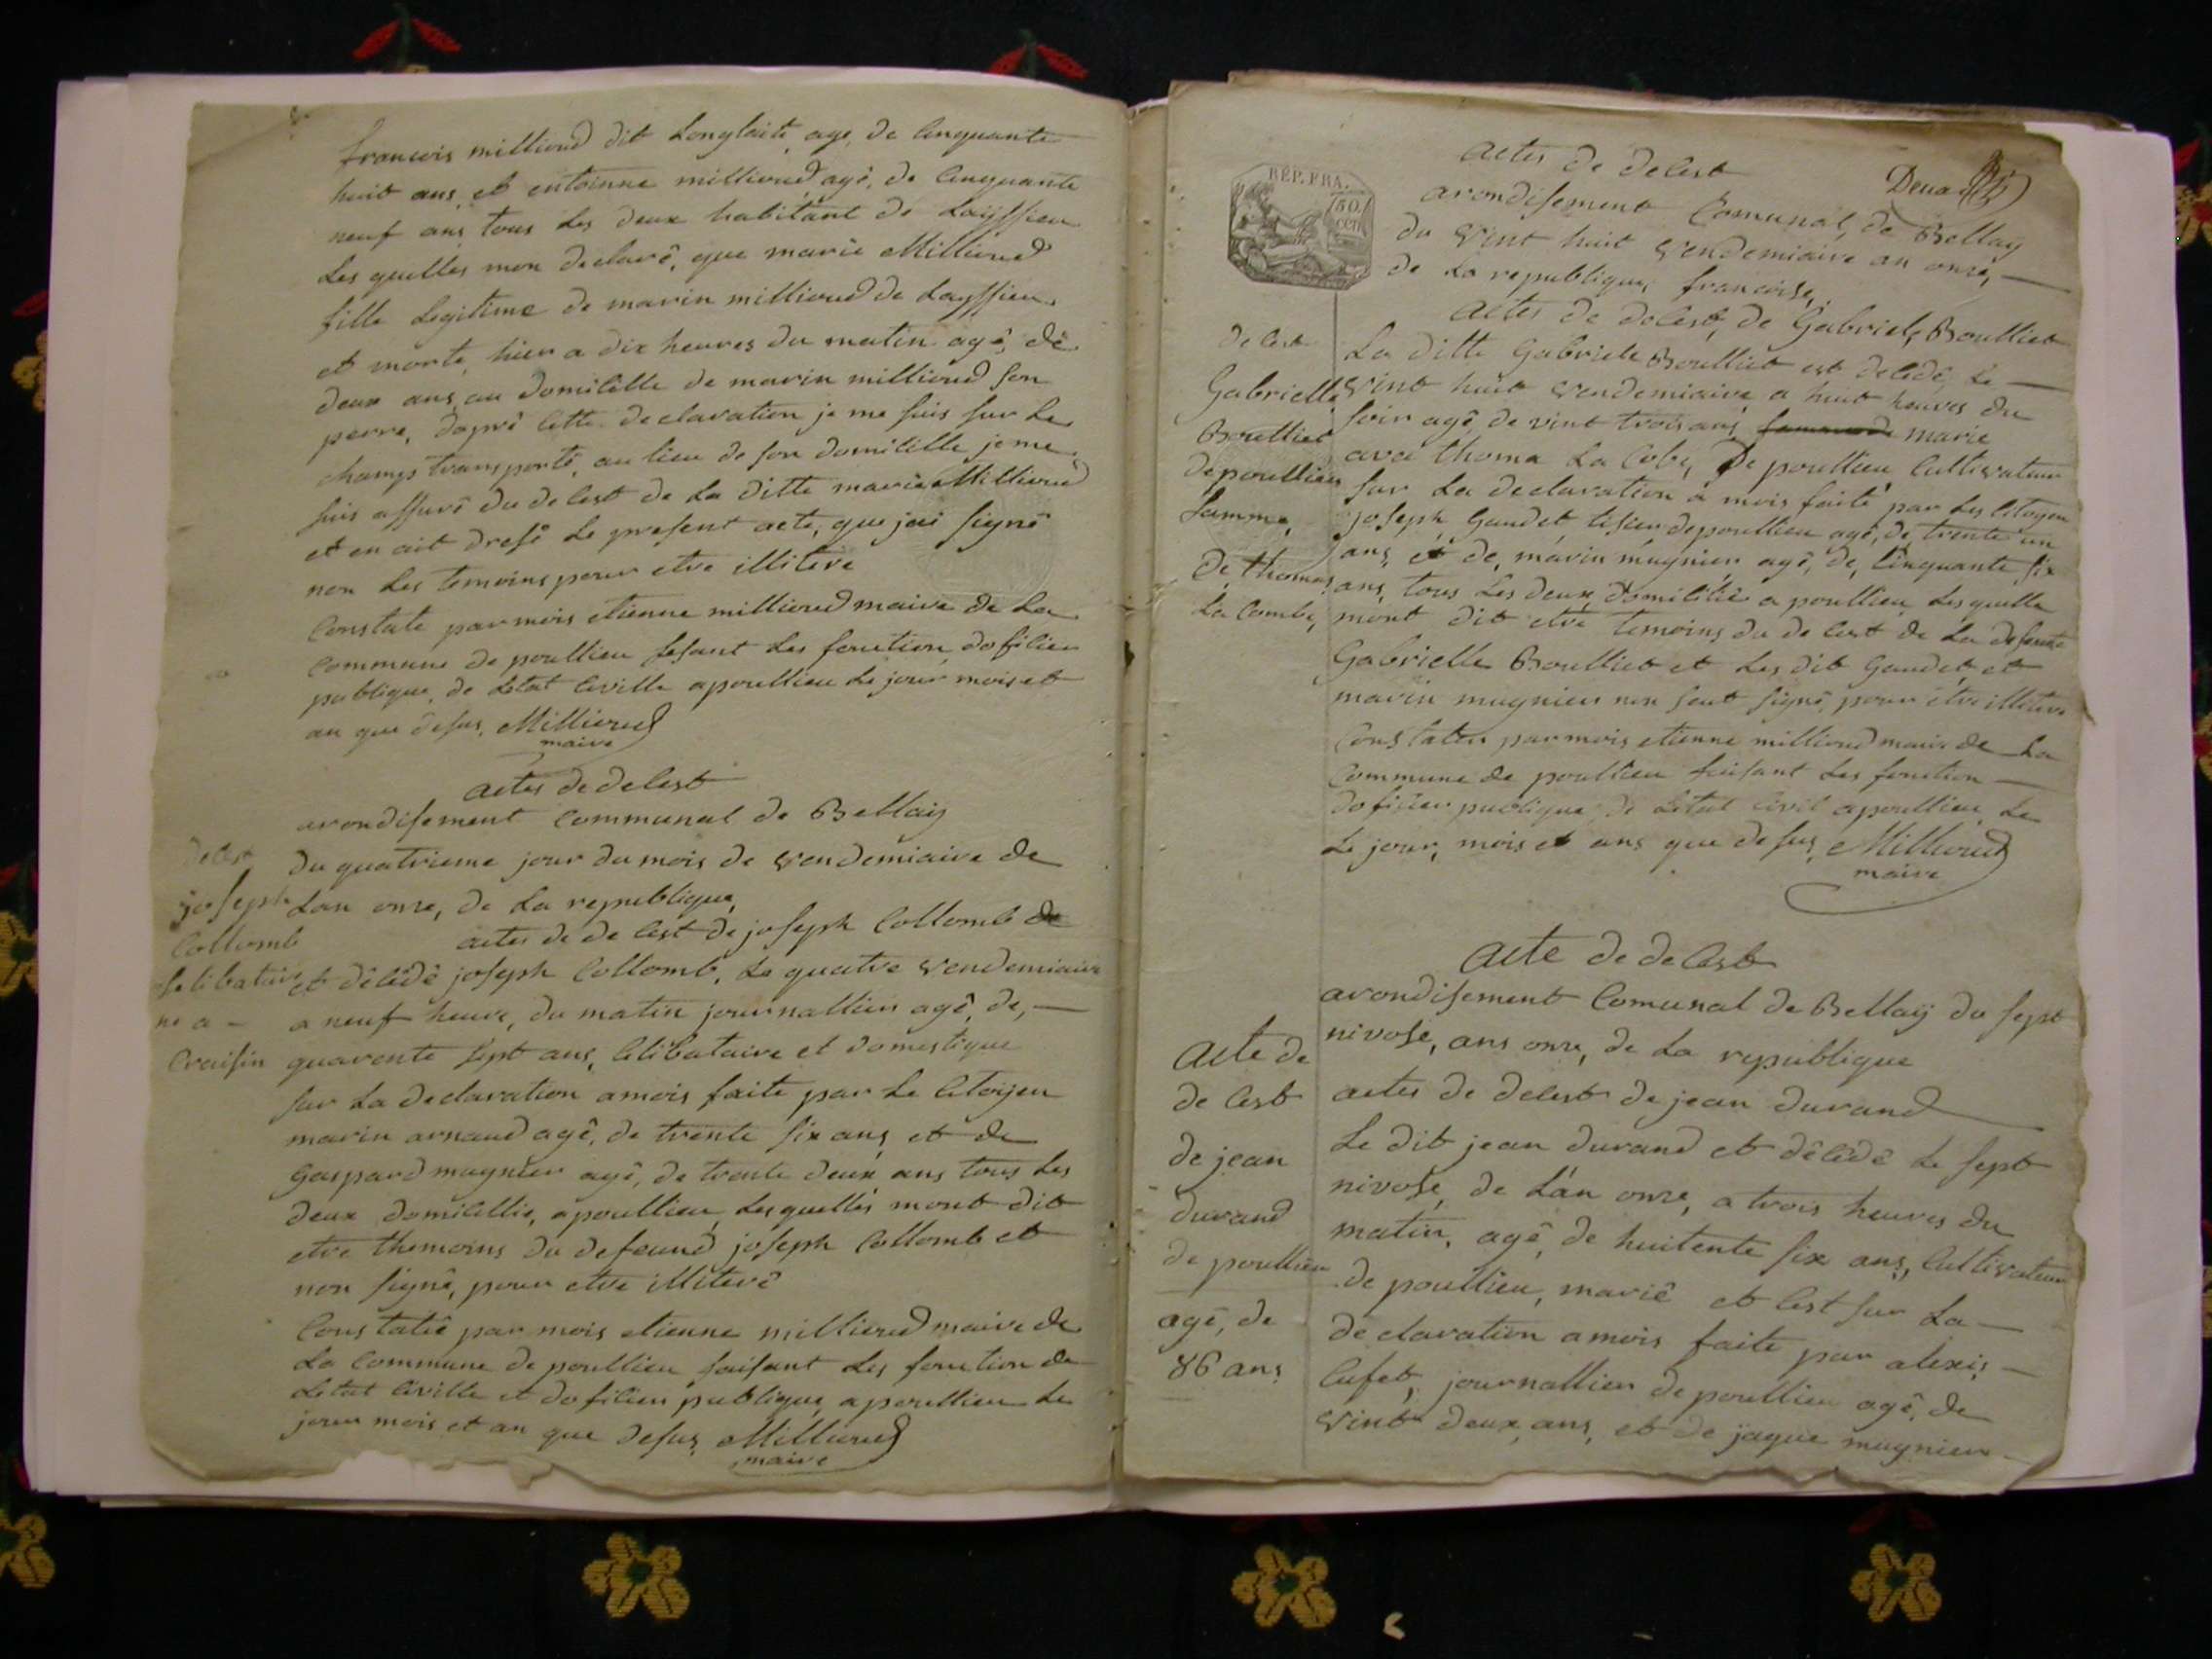 francois milliend dit Longlaite, agé, de Cinquante
huit ans, et entoinne milliend, agé, de Cinquante
neuf ans, tous Les deux habitant de Layssieu
Les quelles mon declaré, que marie Milliend
fille Legitime de marin milliend de Layssieu
et morte, hier a dix heures du matin agé, de
deux ans, au domicille de marin milliend son
perre, dapré Cette declaration je me suis sur Le
champs transporté, au lieu de son domicille je me
suis assuré du de Cest de La ditte marie Milliend
et en ait dresé Le present acte, que jai signé
non Les temoins pour etre illiteré
Constate par mois etienne milliend maire de La
Commune de poullieu fesant Les fonction doficier
publique, de Letat Civille a poullieu Le jour mois et
an que desus, Milliend
maire
actes de deCest
arondisement Communal de Bellay
du quatrieme jour du mois de vendemiaire de
Lan onze, de La republique,
actes de de Cest de joseph Collomb de
et décédé joseph Collomb, Le quatre vendemiaire
a neuf heure, du matin journallier agé, de,
quarente sept ans, Celibataire et domestique
sur La declaration a mois faite par Le Citoyen
marin arnaud agé, de trente six ans, et de
gaspard mugnier agé, de trente deux ans tous Les
deux domicillie, a poullieu, Lesquelles mont dit
etre themoins du defeund joseph Collomb et
non signé, pour etre illiteré
Constatié par mois etienne milliend maire de
La Commune de poullieu faisant Les fonction de
Letat Civille et doficier publique, a poullieu Le
jour mois et an que desus, Milliend
maire
deCest
joseph
Collomb
Selibataire
né a
Craisin
REP. FRA.
50.
CEN.
Deux
actes de deCest
arondisement Comunal, de Bellay
du vint huit vendemiaire an onze,
de La republique, francoise,
actes de deCest, de Gabriele Boulliet
La ditte Gabriele Boulliet est décédé, Le
vint huit vendemiaire, a huit heures du
soir agé, de vint trois ans, marie
avec thoma La Cobe, De poullieu, Cultivateur
sur La declaration a mois faite par Les Citoyen
joseph Gaudet tisieur de poullieu agé, de, trente un
ans, et de, marin mugnier agé, de, Cinquante six
ans, tous Les deux domicilié a poullieu, Lesquelle
mont dit etre temoins du de Cest de La defeunte
Gabrielle Boulliet et Les dit Gaudet, et
marin mugnier non sont signé, pour être illiteré
Constater par mois etienne milliend maire de La
Commune de poullieu faisant Les fonction
doficier publique, de Letat Civil a poullieu, Le
Le jour, mois et ans que desus, Milliend
maire
deCest
Gabrielle
Boulliet
de poullieu
famme,
De thomas
La Combe,
acte de deCest
arondisement Comunal de Bellaÿ du sept
nivose, ans onze, de La republique
actes de deCest de jean durand
Le dit jean durand et décédé Le sept
nivose, de L'an onze, a trois heures du
matin, agé, de huitente six ans, Cultivateur
de poullieu, marié et Cest sur La
declaration a mois faite par alexis
Cufet, journallier de poullieu agé, de
vint deux ans, et de jaque mugnier
acte de
de Cest
de jean
durand
de poullieu
agé, de
86 ans